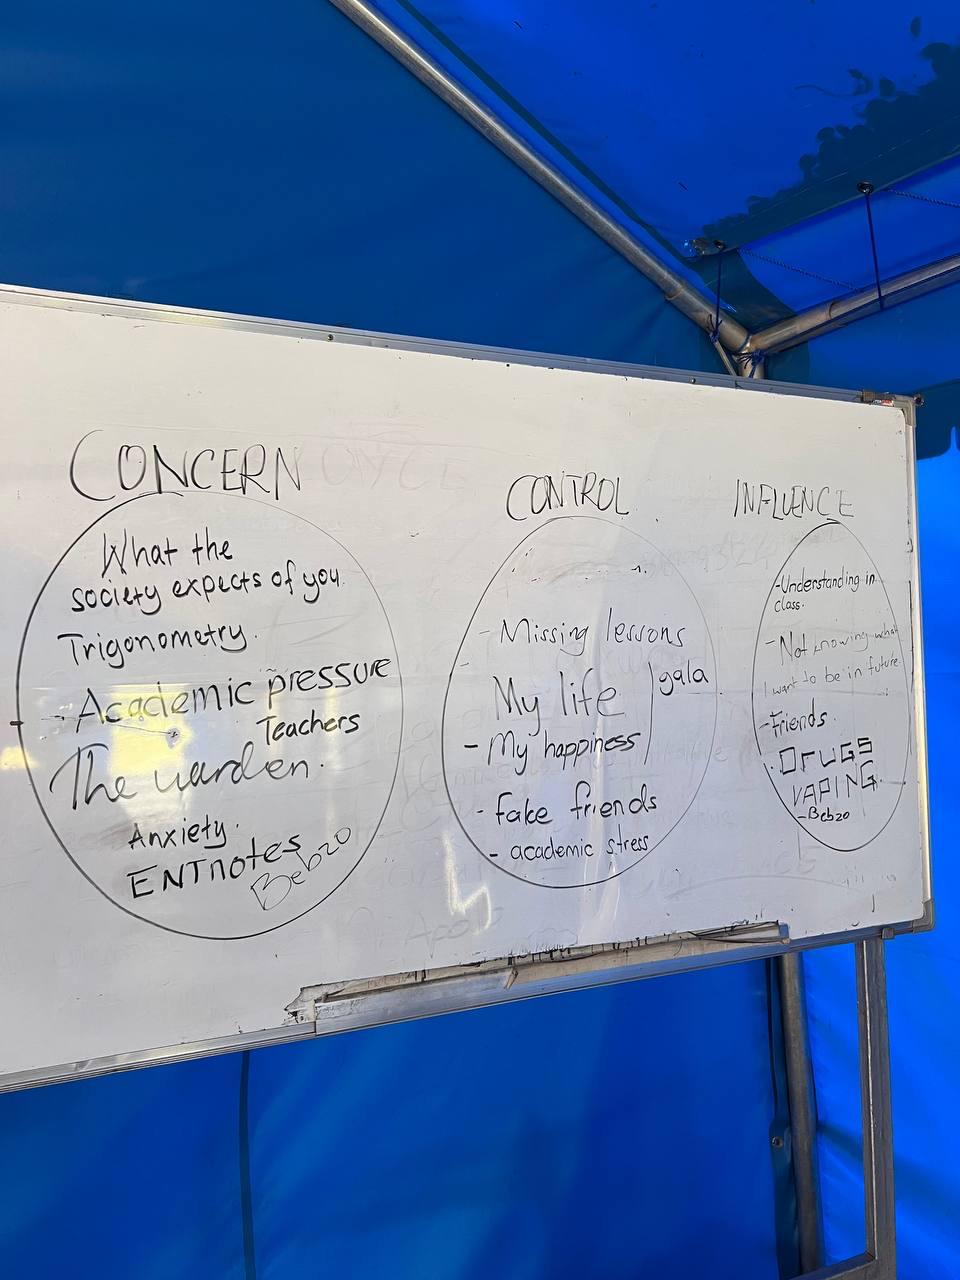 CONCERN
What the
society expects of you.
Trigonometry.
- Academic pressure
Teachers
The warden.
Anxiety.
ENTnotes
Bebzo
CONTROL
- Missing lessons
My life
gala
- My happiness
- fake friends
- academic stress
INFLUENCE
-Understanding in
class.
- Not knowing what
I want to be in future.
- friends.
- DRUGS
VAPING.
- Bebzo